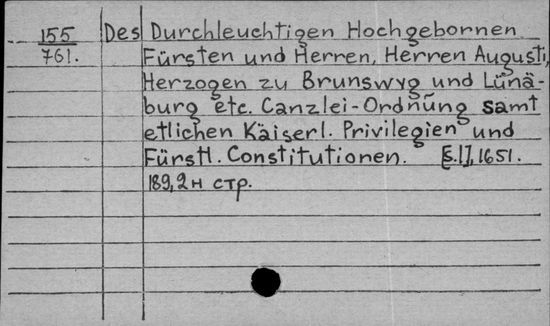 155 Des Durchleuchtigen Hochgebornen
761. Fürsten und Herren, Herren Augusti,
Herzogen zu Brunswyg und Lünä-
burg etc. Canzlei-Ordnung samt
etlichen Käiserl. Privilegien und
Fürstl. Constitutionen. [s.l], 1651.
189, 2н стр.